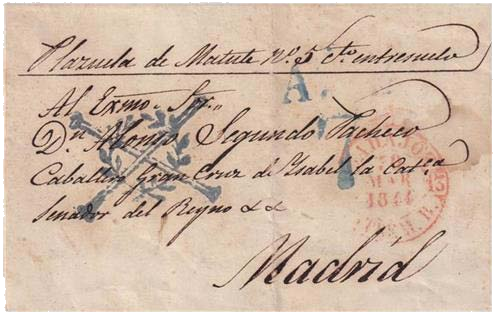 Plazuela de Matute Nº 5 Cto entresuelo
A.
Al Exmo. Sor.
Dn Alonso Segundo Pacheco
Caballero Gran Cruz de Ysabel la Catca
Senador del Reyno &&
BADAJOZ
MAR
184
13
Madrid